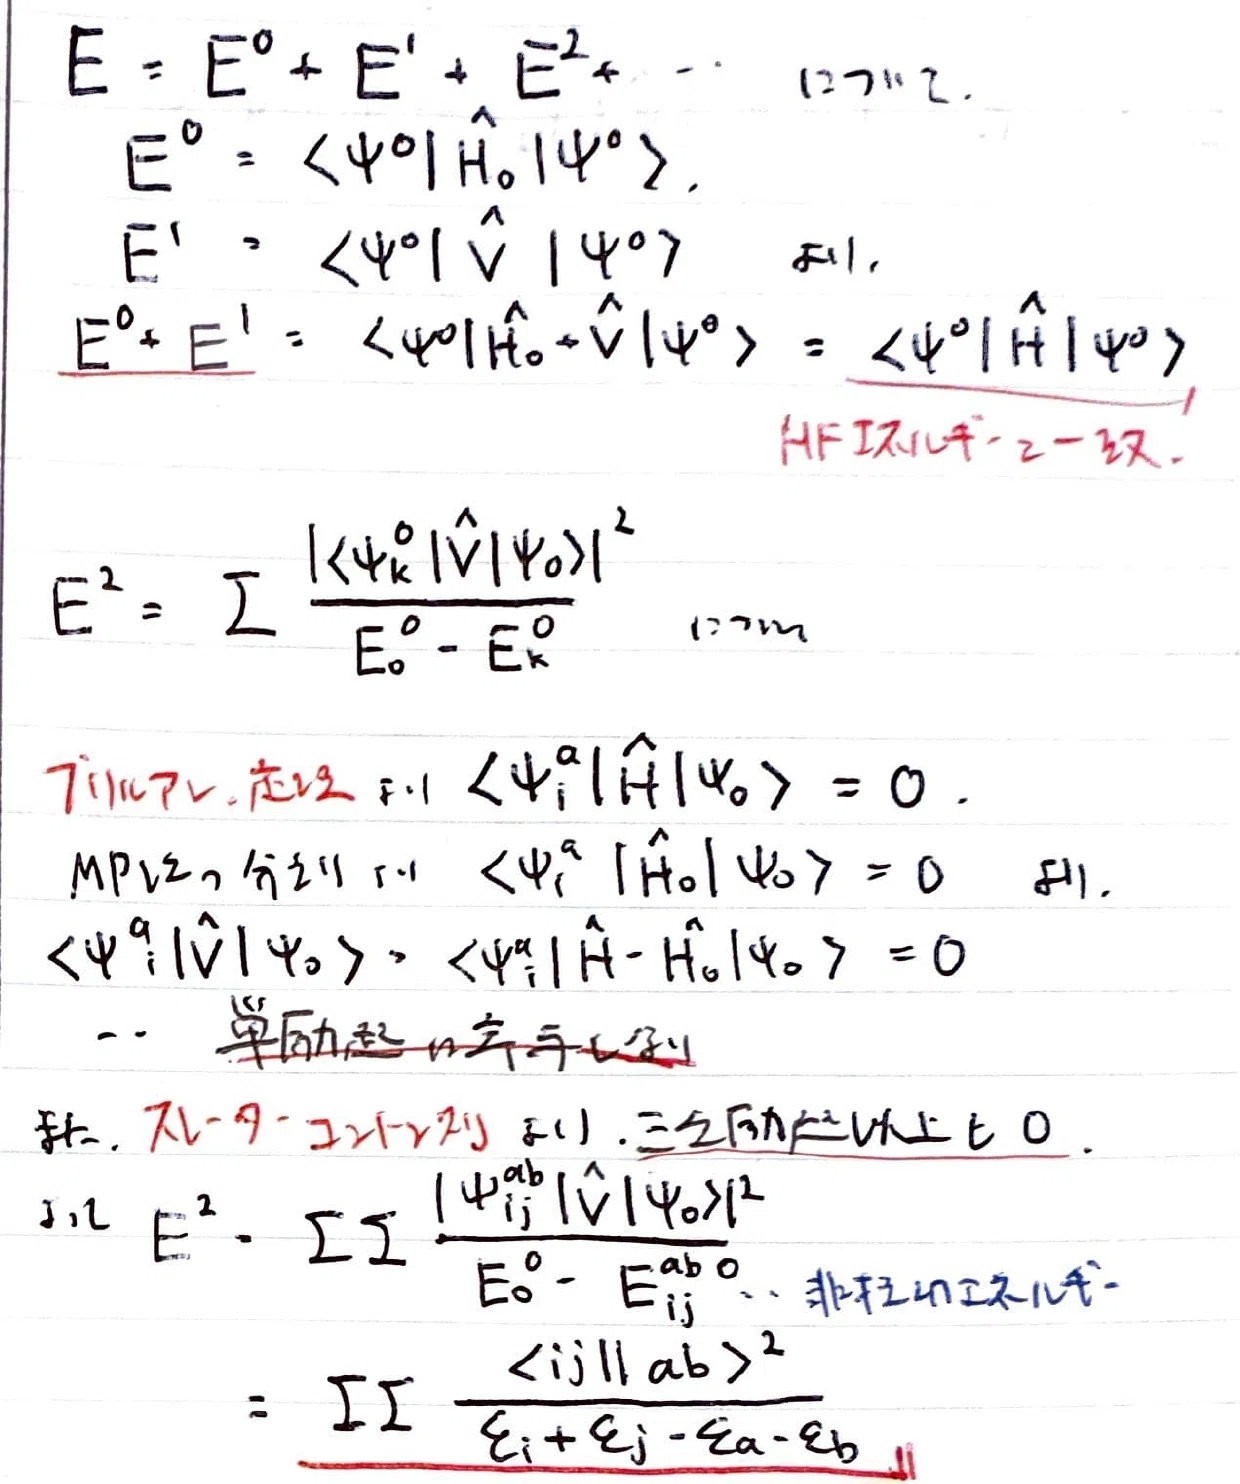 E = E⁰ + E¹ + E² + … について.
E⁰ = <ψ⁰|Ĥ₀|ψ⁰>.
E¹ = <ψ⁰|V̂|ψ⁰> より.
E⁰ + E¹ = <ψ⁰|Ĥ₀+V̂|ψ⁰> = <ψ⁰|Ĥ|ψ⁰>
HFエネルギーと一致.
E² = Σ |<ψₖ⁰|V̂|ψ₀>|² / E₀⁰ - Eₖ⁰ について
ブリルアン定理より <ψᵢᵃ|Ĥ|ψ₀> = 0.
MP法の分割より <ψᵢᵃ|Ĥ₀|ψ₀> = 0 より.
<ψᵢᵃ|V̂|ψ₀> = <ψᵢᵃ|Ĥ-Ĥ₀|ψ₀> = 0
‥ 単励起は寄与しない
また. スレーターコンドン則より. 三電子励起以上も 0.
よって E² = ΣΣ |ψᵢⱼᵃᵇ|V̂|ψ₀>|² / E₀⁰ - Eᵢⱼᵃᵇ⁰ ‥ 非摂動エネルギー
= ΣΣ <ij||ab>² / εᵢ + εⱼ - εₐ - ε_b